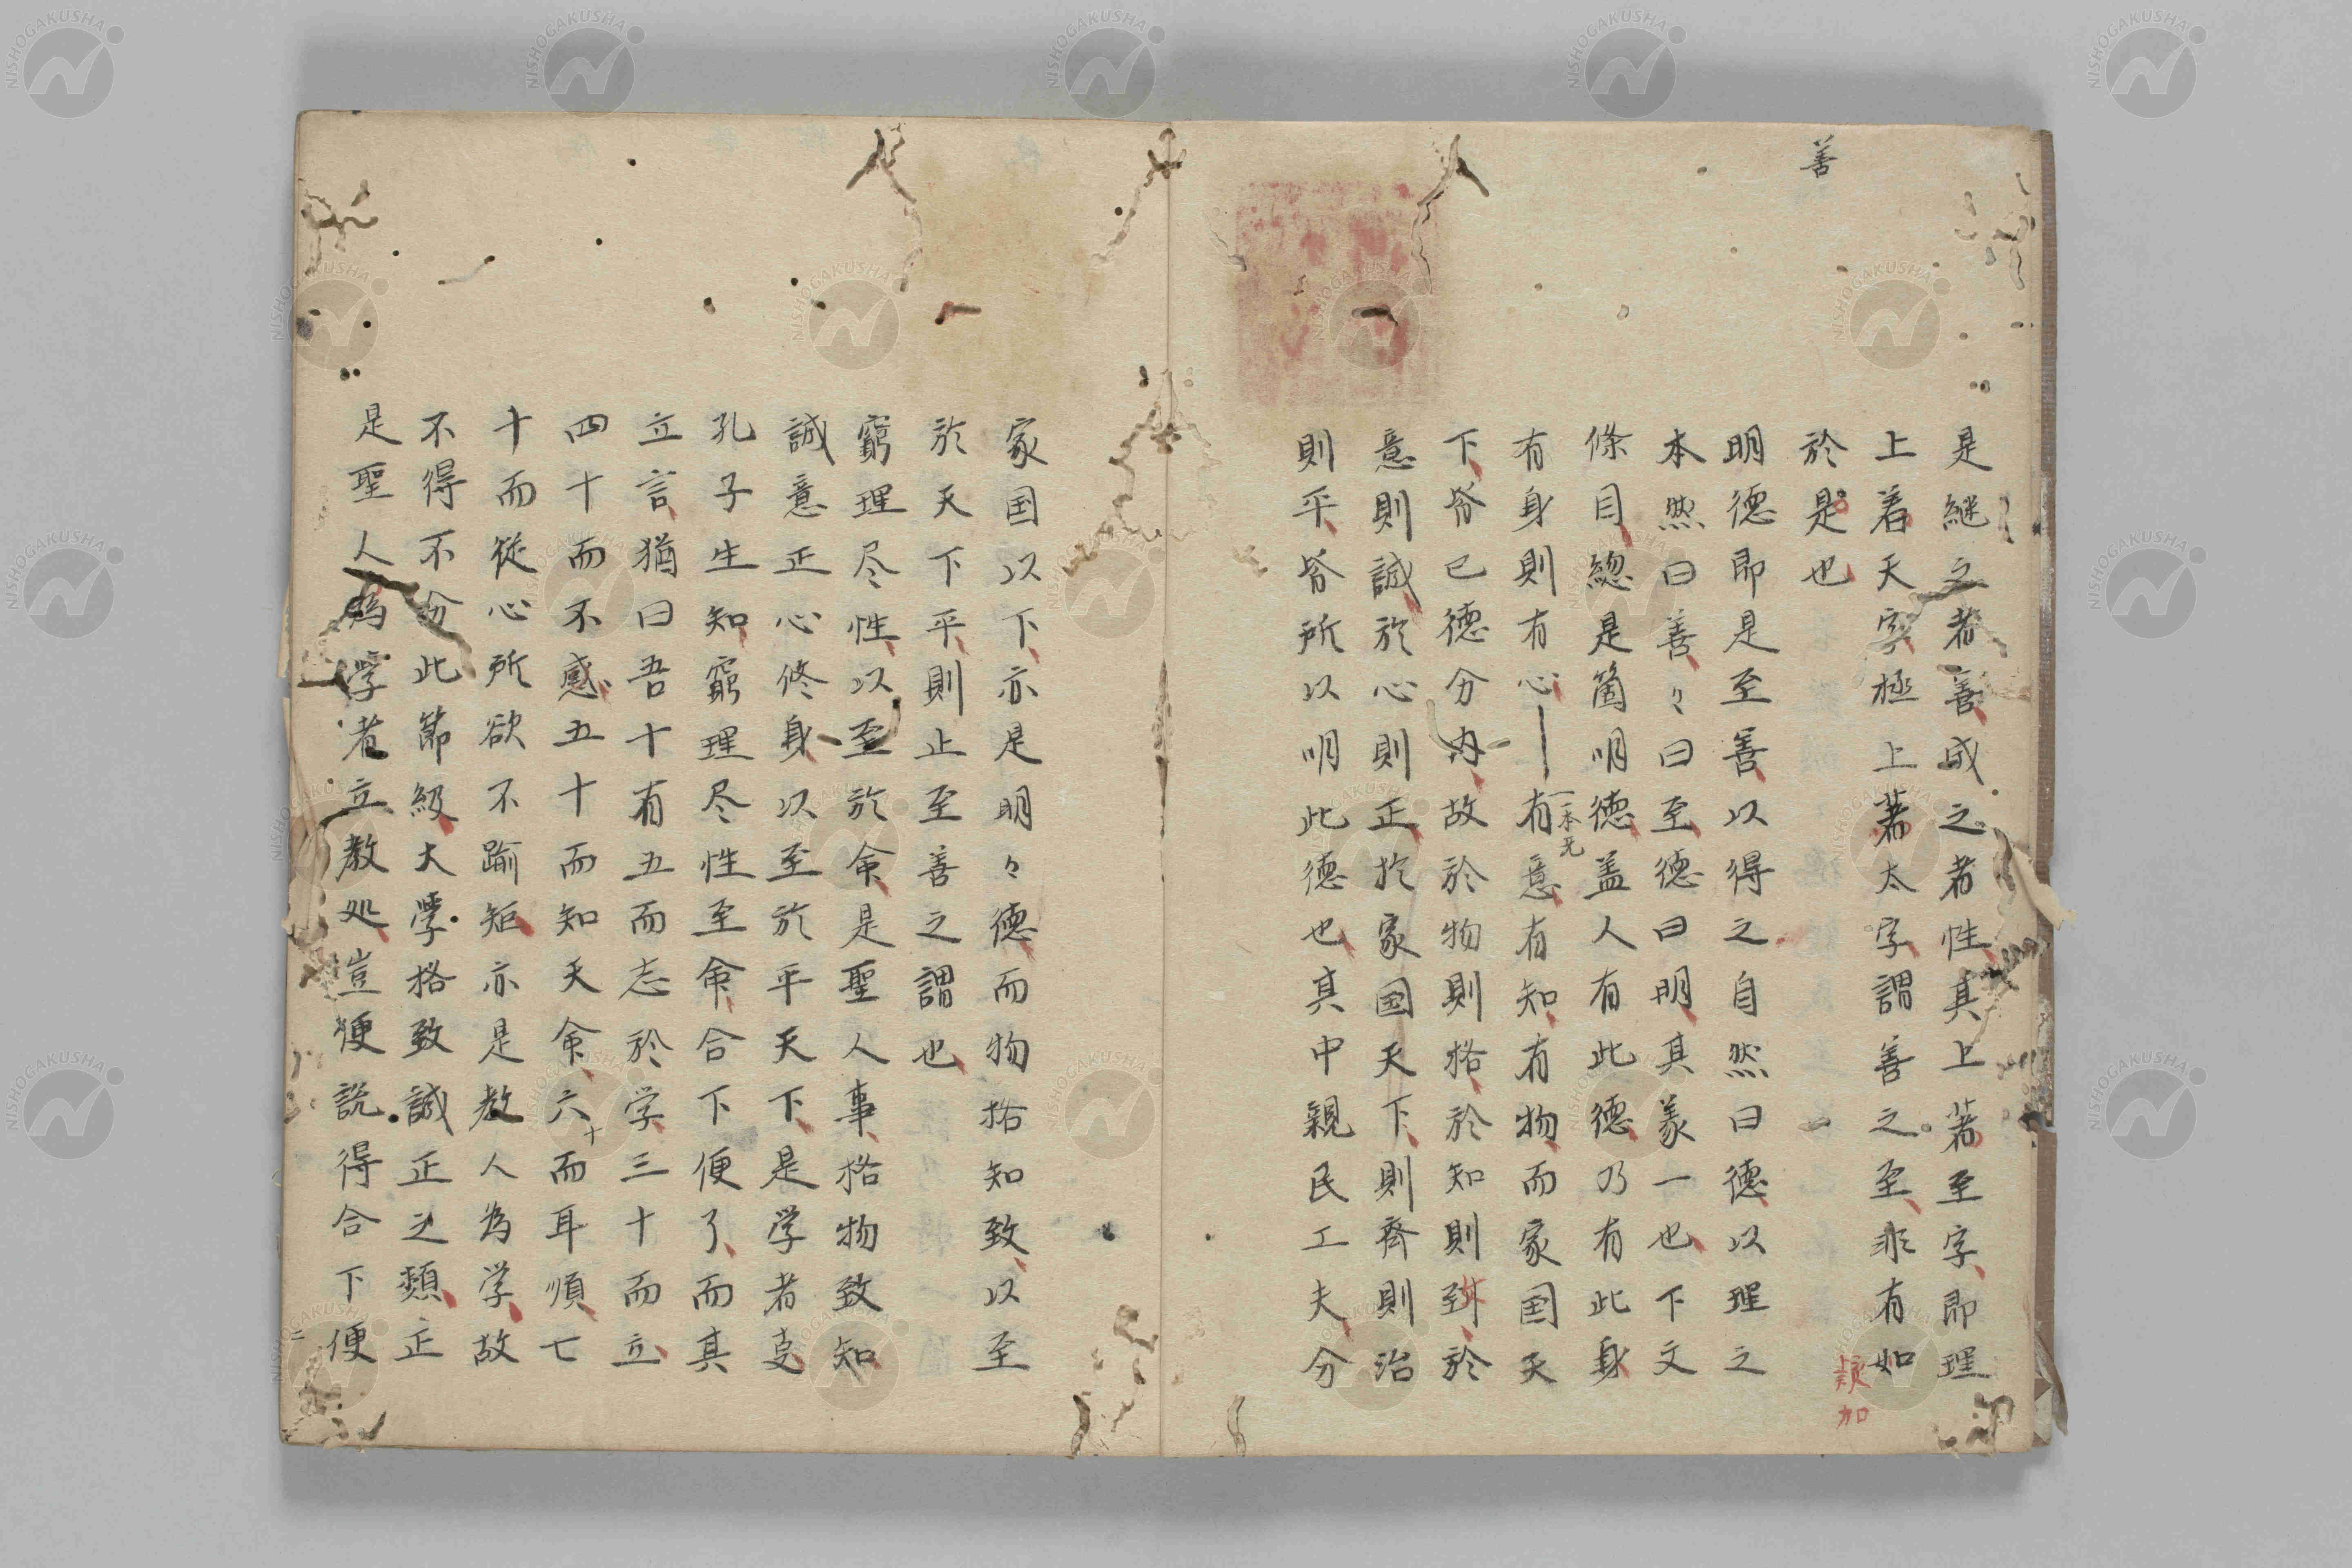 善
是継之者善成之者性其上著至字即理
上着天字極上著太字謂善之至非有如
疑加
於是也
明徳即是至善以得之自然曰徳以理之
本然曰善々曰至徳曰明其義一也下文
條目緫是箇明徳盖人有此徳乃有此身
有身則有心｜有意有知有物而家国天
一本无
下皆己徳分内故於物則格於知則致於
意則誠於心則正於家国天下則齊則治
則平皆所以明此徳也其中親民工夫分
家国以下亦是明々徳而物格知致以至
於天下平則止至善之謂也
窮理尽性以至於命是聖人事格物致知
誠意正心修身以至於平天下是学者事
孔子生知窮理尽性至命合下便了而其
立言猶曰吾十有五而志於学三十而立
四十而不惑五十而知天命六十而耳順七
十而従心所欲不踰矩亦是教人為学故
不得不分此節級大學格致誠正之類正
是聖人為学者立教处豈便説得合下便
二
NISHOGAKUSHA